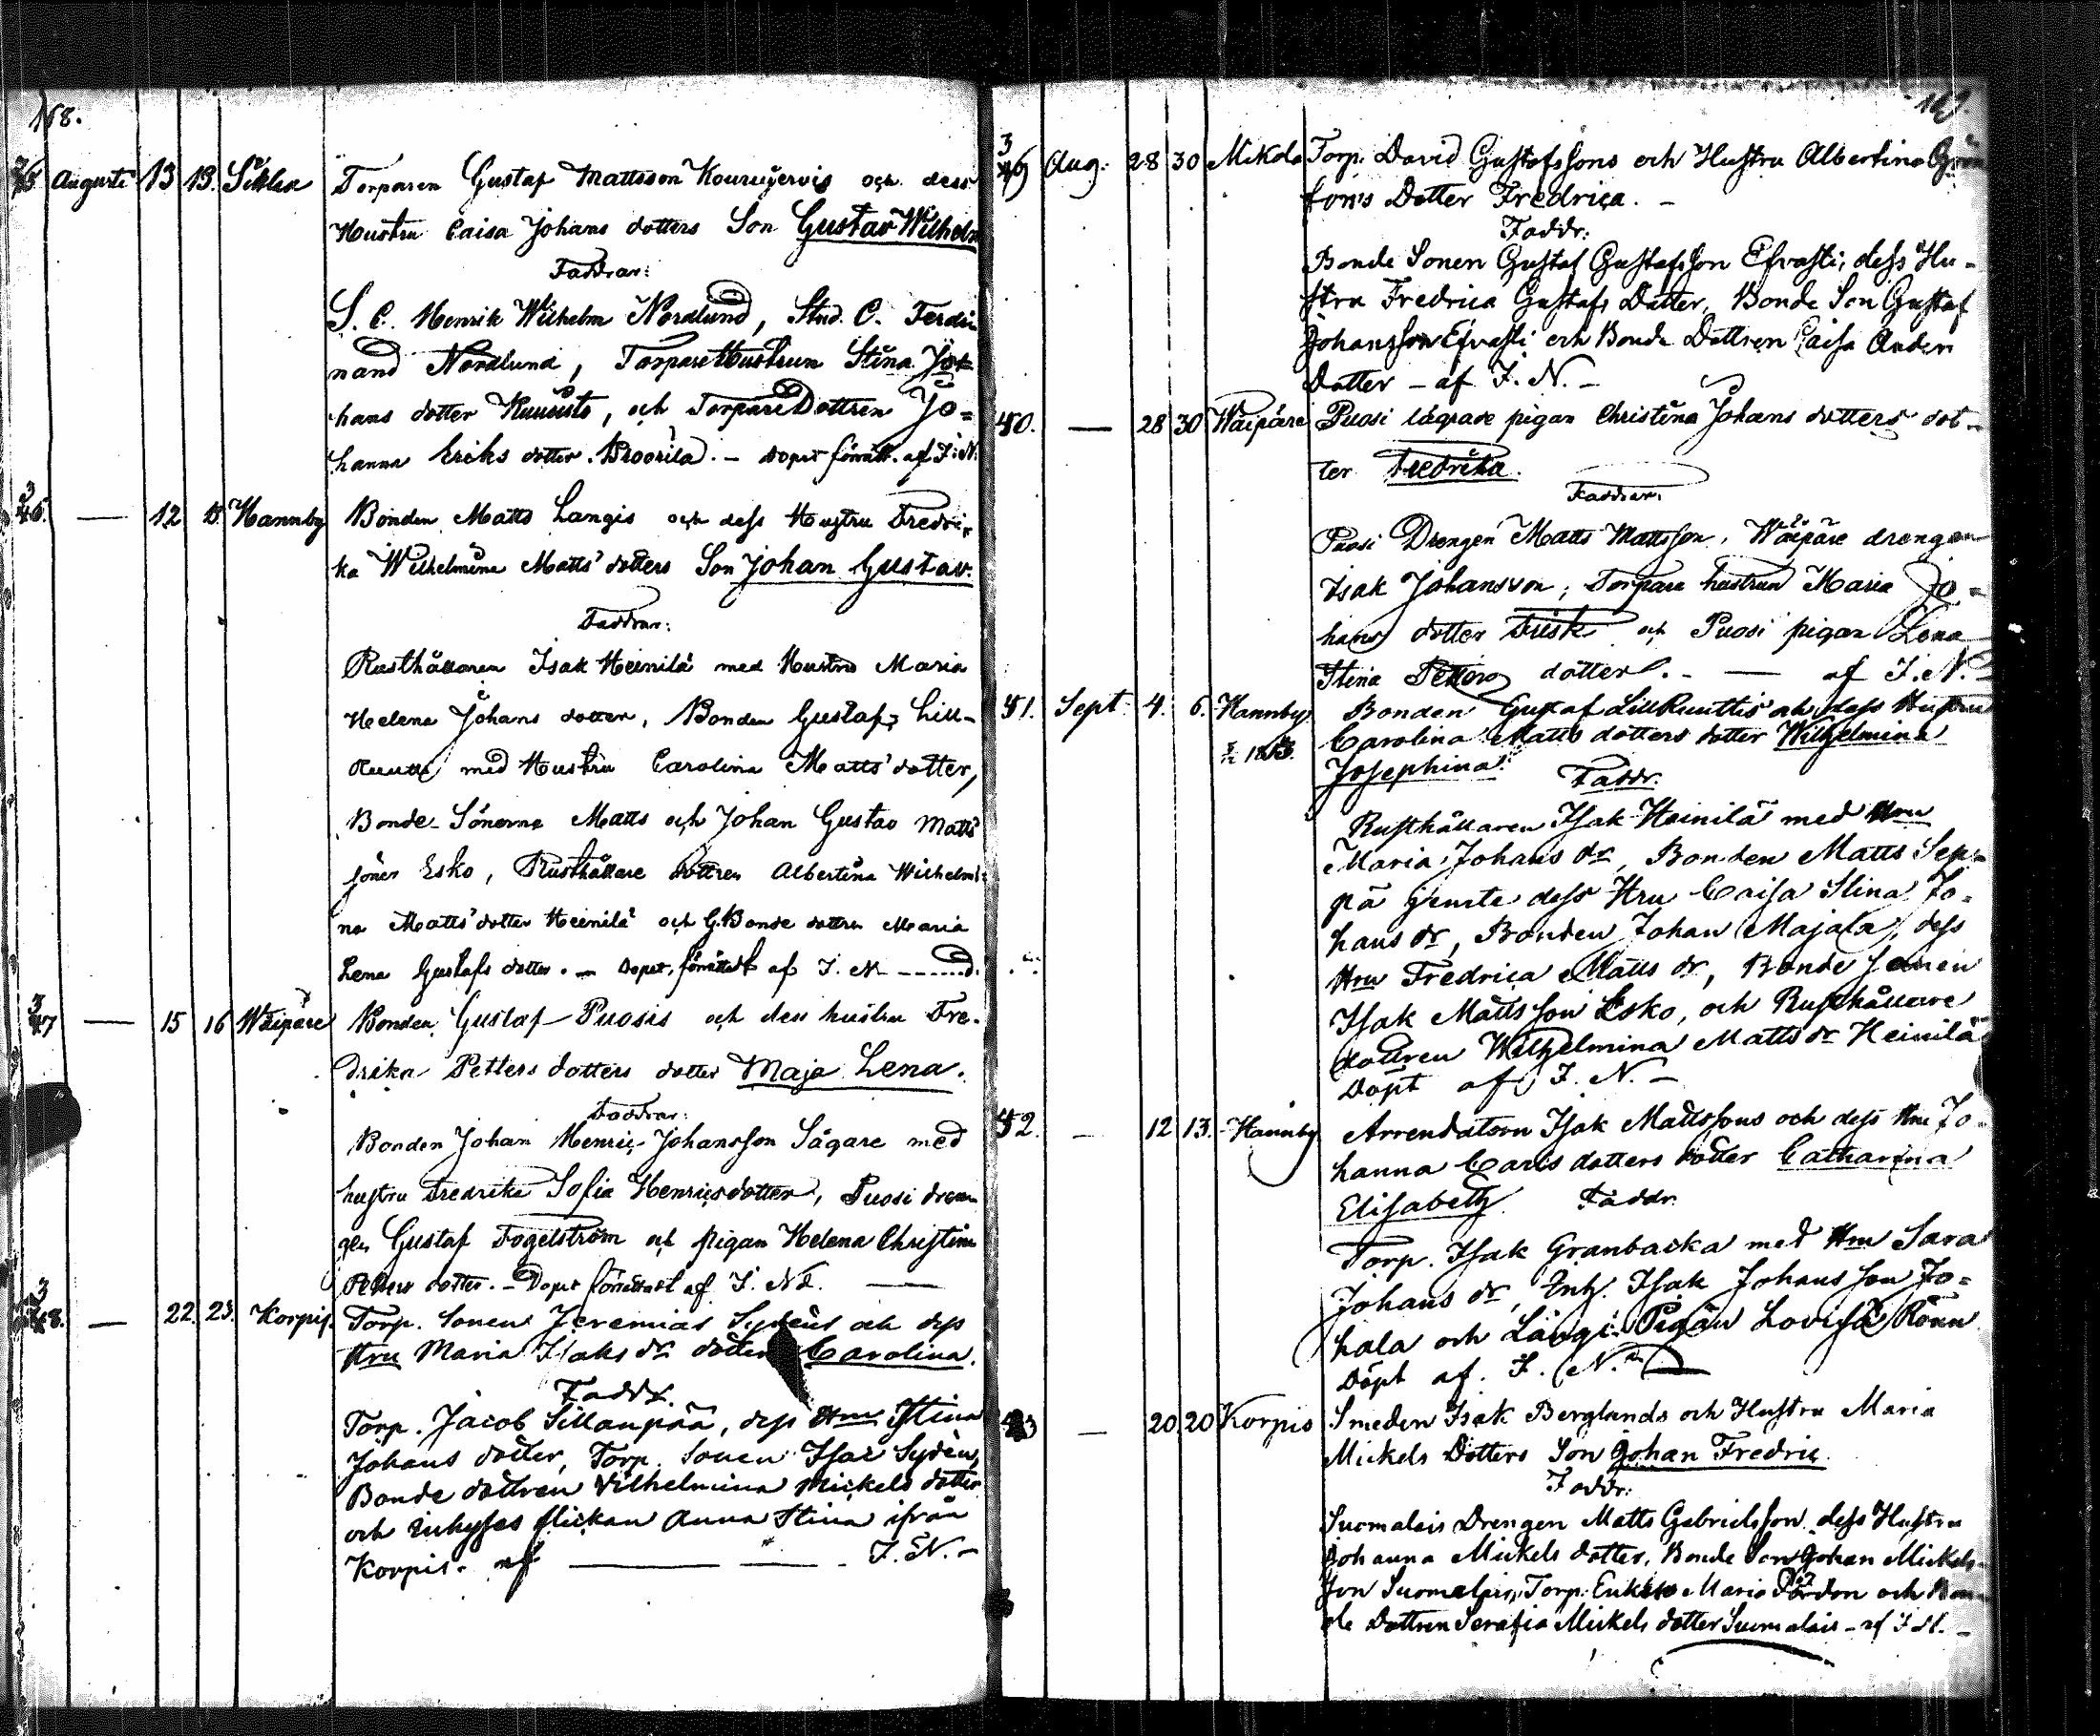 168.
35 Augusti 13 13. Sikka Torparen Gustaf Mattsson Kourujervis och dess
Hustru Caisa Johans dotters Son Gustav Wilhelm
Faddrar:
S. C. Henrik Wilhelm Nordlund, Stud. C. Ferdi-
nand Nordlund, Torpare Hustrun Stina Jo-
hans dotter Kuusisto, och Torpare Dottren Jo=
hanna Eriks dotter. – Dopet förrätt. af J. N.
36. — 12 Hannby Bonden Matts Langis och dess Hustru Fredri-
ka Wilhelmina Matts dotters Son Johan Gustav.
Faddrar:
Rusthållaren Isak Heinilä med Hustru Maria
Helena Johans dotter, Bonden Gustaf Lill-
Ruutti med Hustru Carolina Matts dotter,
Bonde Sönerna Matts och Johan Gustav Matts
söner Esko, Rusthållare dottren Albertina Wilhelmi-
na Matts dotter Heinilä och G. Bonde dottren Maria
Lena Gustafs dotter. – Dopet förrättadt af J. N. ——d.
37 — 15 16 Wäipäre Bonden Gustaf Puosis och dess hustru Fre-
drika Petters dotters dotter Maja Lena.
Faddrar:
Bonden Johan Henric Johansson Sägare med
hustru Fredrika Sofia Henricsdotter, Puosi dren-
gen Gustaf Fogelström och pigan Helena Christina
Petters dotter. – Dopet förrättadt af J. Nd. —
38. — 22 23. Korpis. Torp. Sonen Jeremias Sydéns och dess
Hru Maria Isaks dr dotter Carolina.
Faddr.
Torp. Jacob Sillanpää, dess Hru Stina
Johans dotter, Torp. Sonen Isac Sydén,
Bonde dottren Vilhelmina Mickels dotter
och Inhyses flickan Anna Stina ifrån
Korpis. af — — J. N. –
169.
39 Aug: 28 30 Mikola Torp. David Gustafssons och Hustru Albertina Grön
fors Dotter Fredrica. –
Faddr:
Bonde Sonen Gustaf Gustafsson Efvasti, dess Hu-
stru Fredrica Gustafs Dotter, Bonde Son Gustaf
Johansson Efvasti och Bonde Dottren Caisa Anders
Dotter – af J. N. –
40. — 28 30 Wäipäre Puosi lägrade pigan Christina Johans dotters dot-
ter Fredrika.
Faddrar:
Puosi Drengen Matts Mattsson, Wäipäre drengen
Isak Johansson, Torpare hustrun Maria Jo-
hans dotter Frisk och Puosi pigan Lena
Stina Petters dotter. – — af J. N.
41. Sept. 4. 6. Hannby Bonden Gustaf Lill Ruuttis och dess Hustru
Carolina Matts dotters dotter Wilhelmina
Josephina. Faddr.
Rusthållaren Isak Heinilä med Hru
Maria Johans dr, Bonden Matts Sep-
pä jemte dess Hru Caisa Stina Jo-
hans dr, Bonden Johan Majala, dess
Hru Fredrica Matts dr, Bonde Sonen
Isak Mattsson Esko, och Rusthållare
dottren Wilhelmina Matts dr Heinilä
Döpt af J. N. –
42. — 12 13. Hannby Arrendatorn Isak Mattssons och dess Hru Jo-
hanna Carls dotters dotter Catharina
Elisabeth. Faddr.
Torp. Isak Granbacka med Hru Sara
Johans dr, Enk. Isak Johansson Jo=
hala och Längi Pigan Lovisa Rönn
Döpt af. J. N.
43 — 20 20 Korpis Smeden Isak Berglunds och Hustru Maria
Mickels Dotters Son Johan Fredric.
Faddr:
Suomalais Drengen Matts Gabrielsson dess Hustru
Johanna Mickels dotter, Bonde Son Johan Mickels-
son Suomalais, Torp. Enkan Maria och Bon-
de Dottren Serafia Mickels dotter Suomalais – af J. N. –